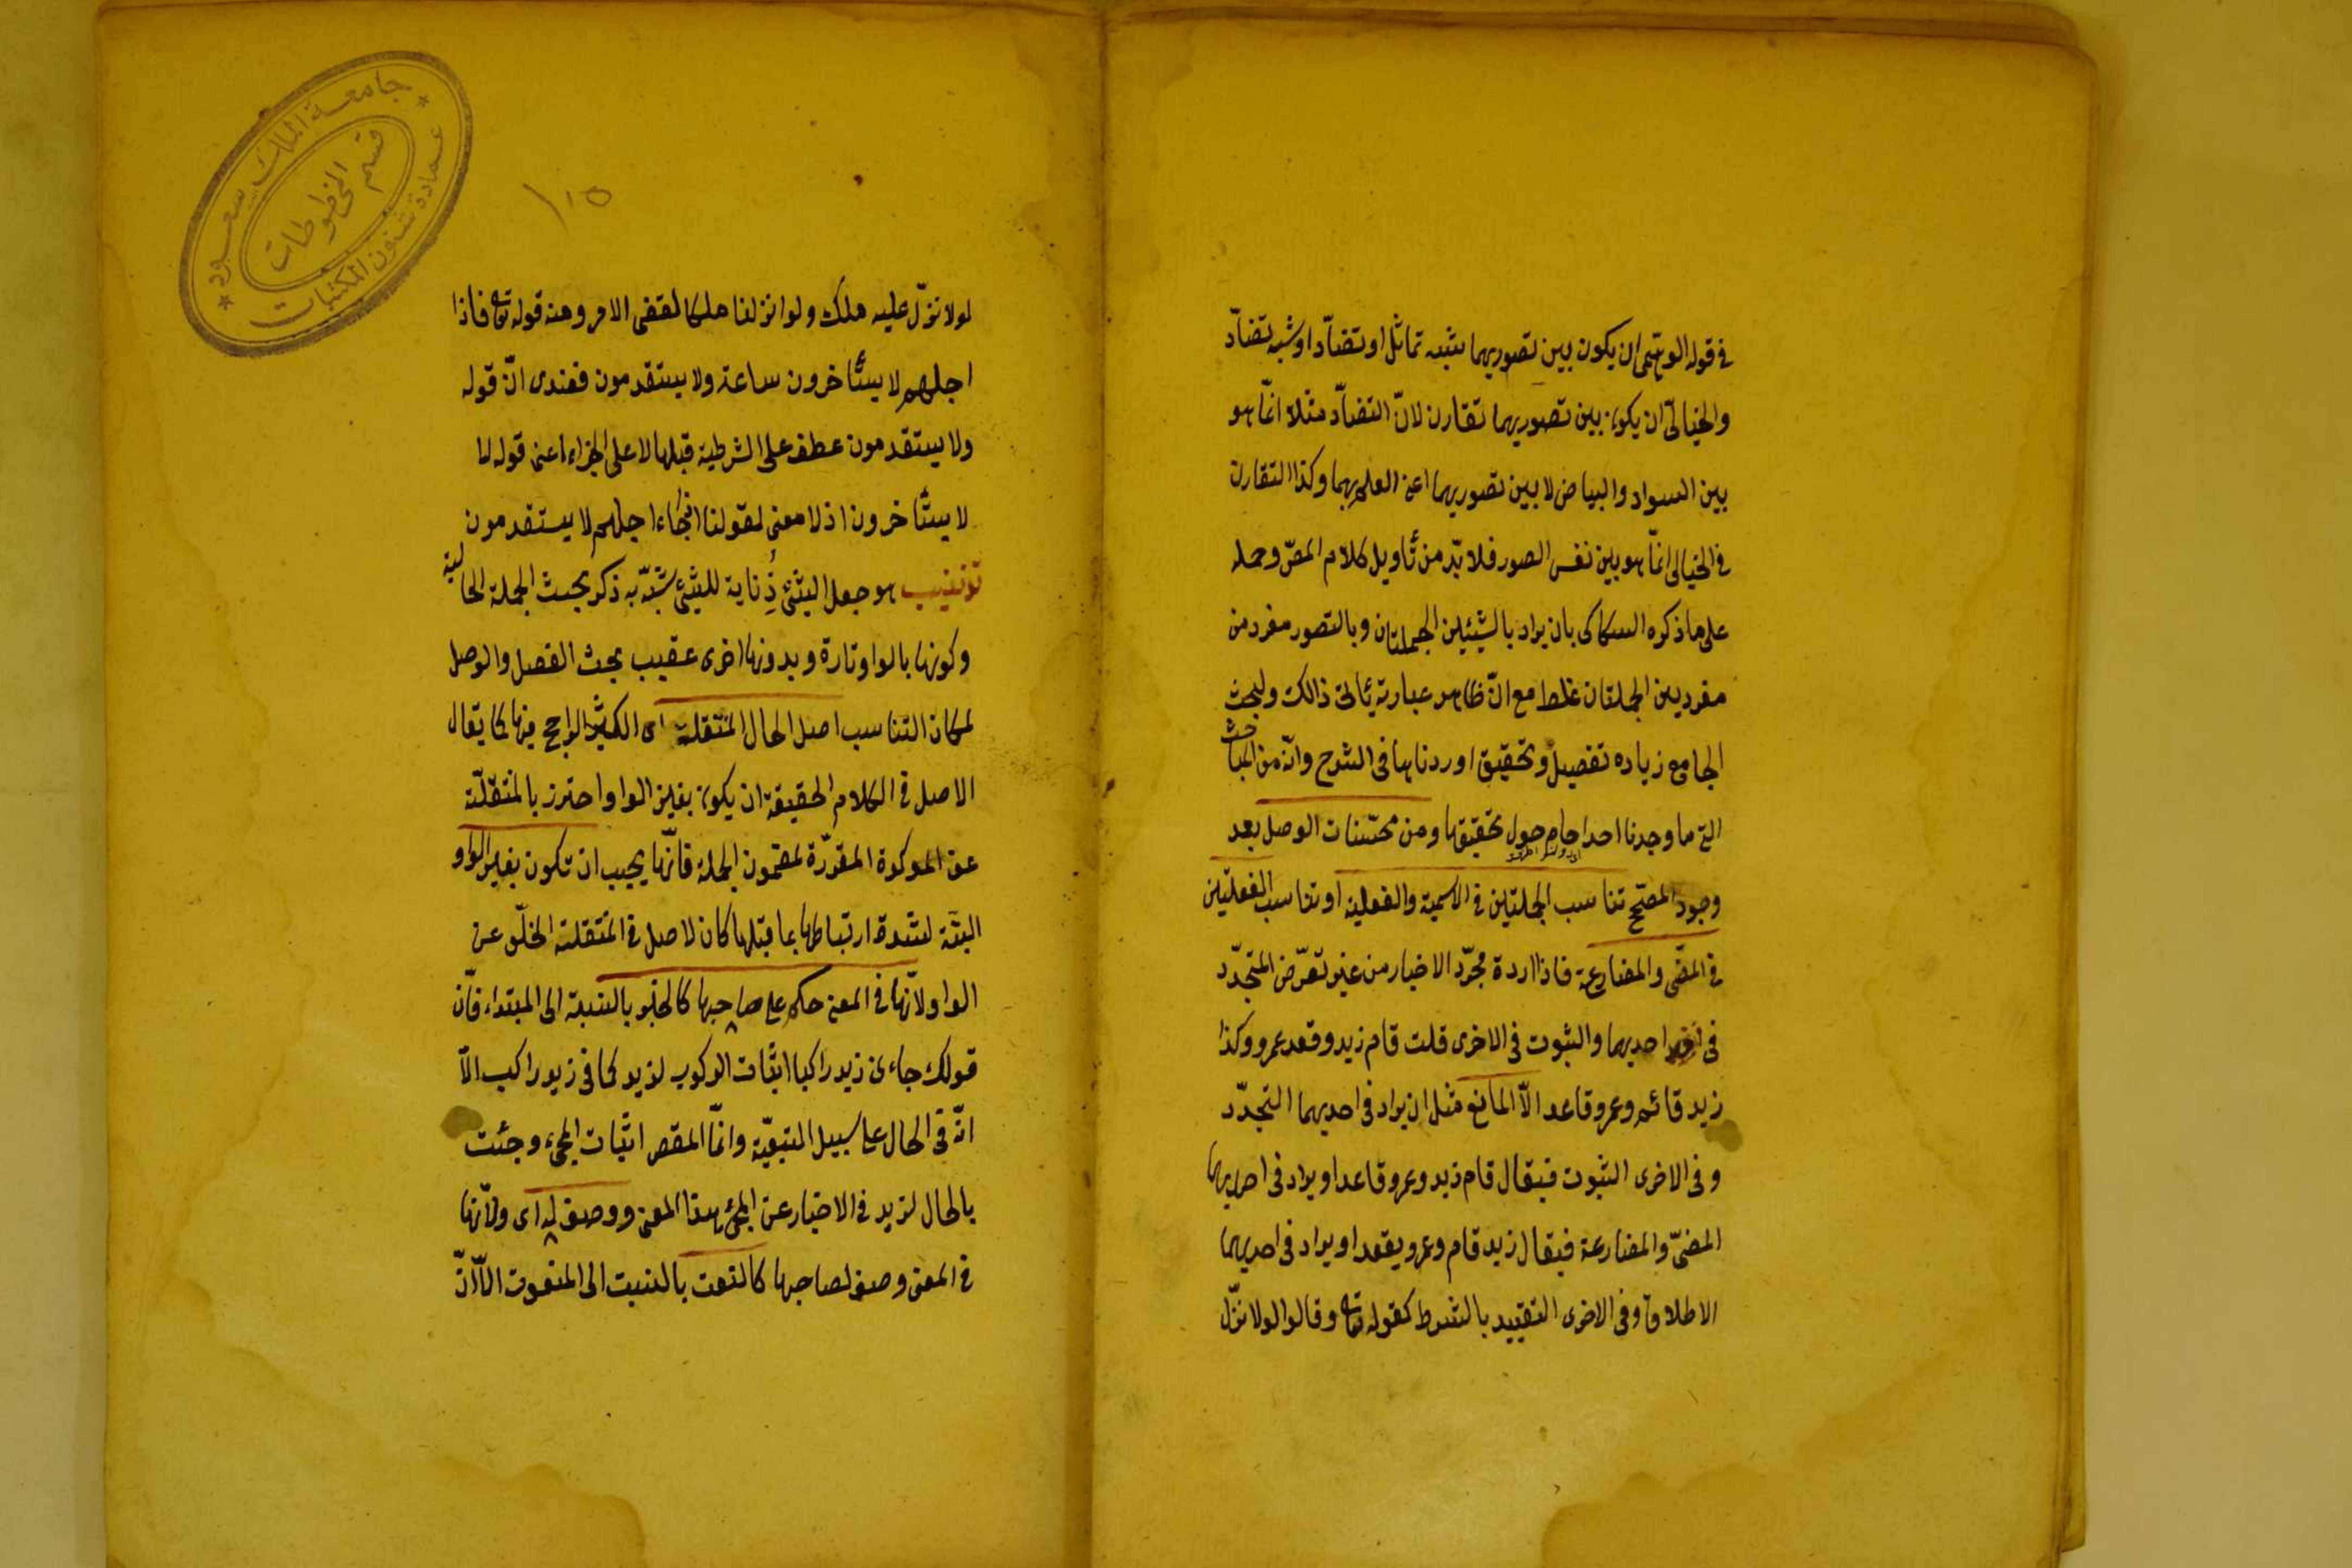 فى قوله الوهمى ان يكون بين تصوريهما شبه تماثل او تضادّ او شبه تضادّ
والخيالىّ ان يكون بين تصوريهما تقارن لانّ التضادّ مثلا انّما هو
بين السواد والبياض لا بين تصوريهما اعنى العلم بهما وكذا التقارن
فى الخيالى انّما هو بين نفس الصور فلا بدّ من تأويل كلام المصّ وحمله
على ما ذكره السكاكى بان يراد بالشيئين الجملتان وبالتصور مفرد من
مفردين الجملتان غلط مع انّ ظاهر عبارته يأبى ذالك ولبحث
الجامع زياده تفصيل وتحقيق اوردناها فى الشرح وانّه من المباحث
التى ما وجدنا احدا حام حول تحقيقها ومن محسّنات الوصل بعد
وجود المصحّح تناسب الجملتين فى الاسمية والفعلية او تناسب الفعليتين
فى المضى والمضارعة فاذا اردة مجرّد الاخبار من غير تعرّض المتجدّد
فى احديهما والثبوت فى الاخرى قلت قام زيد وقعد عمرو وكذا
زيد قائم وعمرو قاعد الاّ المانع مثل ان يراد فى احديهما التجدّد
وفى الاخرى الثبوت فيقال قام زيد وعمرو قاعد او يراد فى احديهما
المضىّ والمضارعة فيقال زيد قام وعمرو يقعد او يراد فى احديهما
الاطلاق وفى الاخرى التقييد بالشرط كقوله تعا وقالوا لولا نزّل
جامعة الملك سعود
قسم المخطوطات
عمادة شئون المكتبات
١١٥
لولا نزّل عليه ملك ولو انزلنا ملكا لقضى الامر ومنه قوله تعا فاذا
اجلهم لا يستأخرون ساعة ولا يستقدمون فعندى انّ قوله
ولا يستقدمون عطف على الشرطية قبلها لا على الجزاء اعنى قوله لا
لا يستأخرون اذ لا معنى لقولنا اذا جاء اجلهم لا يستقدمون
تذنيب هو جعل الشئ ذِنابة للشئ شبّه به ذكر بحث الجملة الحالية
وكونها بالواو تارة وبدونها اخرى عقيب بحث الفصل والوصل
لمكان التناسب اصل الحال المنتقلة اى الكثير الراجح فيها كما يقال
الاصل فى الكلام الحقيقة ان يكون بغير الواو واحترز بالمنتقلة
عن الموكدة المقررّة لمضمون الجملة فانّها يجيب ان تكون بغير الواو
البتّة لشدة ارتباطها بما قبلها كان لاصل فى المنتقلة الخلّو عن
الواو لانّها فى المعنى حكم على صاحبها كالخبر بالنسبة الى المبتداء فانّ
قولك جاءنى زيد راكبا اثبات الركوب لزيد كما فى زيد راكب الاّ
انّه فى الحال على سبيل التبعيّة وانّما المقص اثبات المجئ وجئت
بالحال لزيد فى الاخبار عن المجئ هذا المعنى ووصف له اى ولانّها
فى المعنى وصف لصاحبها كالنعت بالنسبت الى المنعوت الاّ انّ